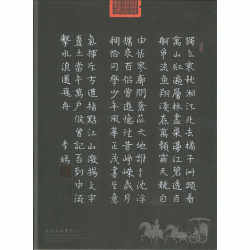 獨立寒秋湘江北去橘子洲頭看
萬山紅遍層林盡染漫江碧透百
舸爭流魚翔淺底萬類霜天競自
由悵寥廓問蒼茫大地誰主沉浮
攜來百侶曾遊憶往昔崢嶸歲月
稠恰同學少年風華正茂書生意
氣揮斥方遒指點江山激揚文字
糞土當年萬戶侯曾記否到中流
擊水浪遏飛舟 李嫣